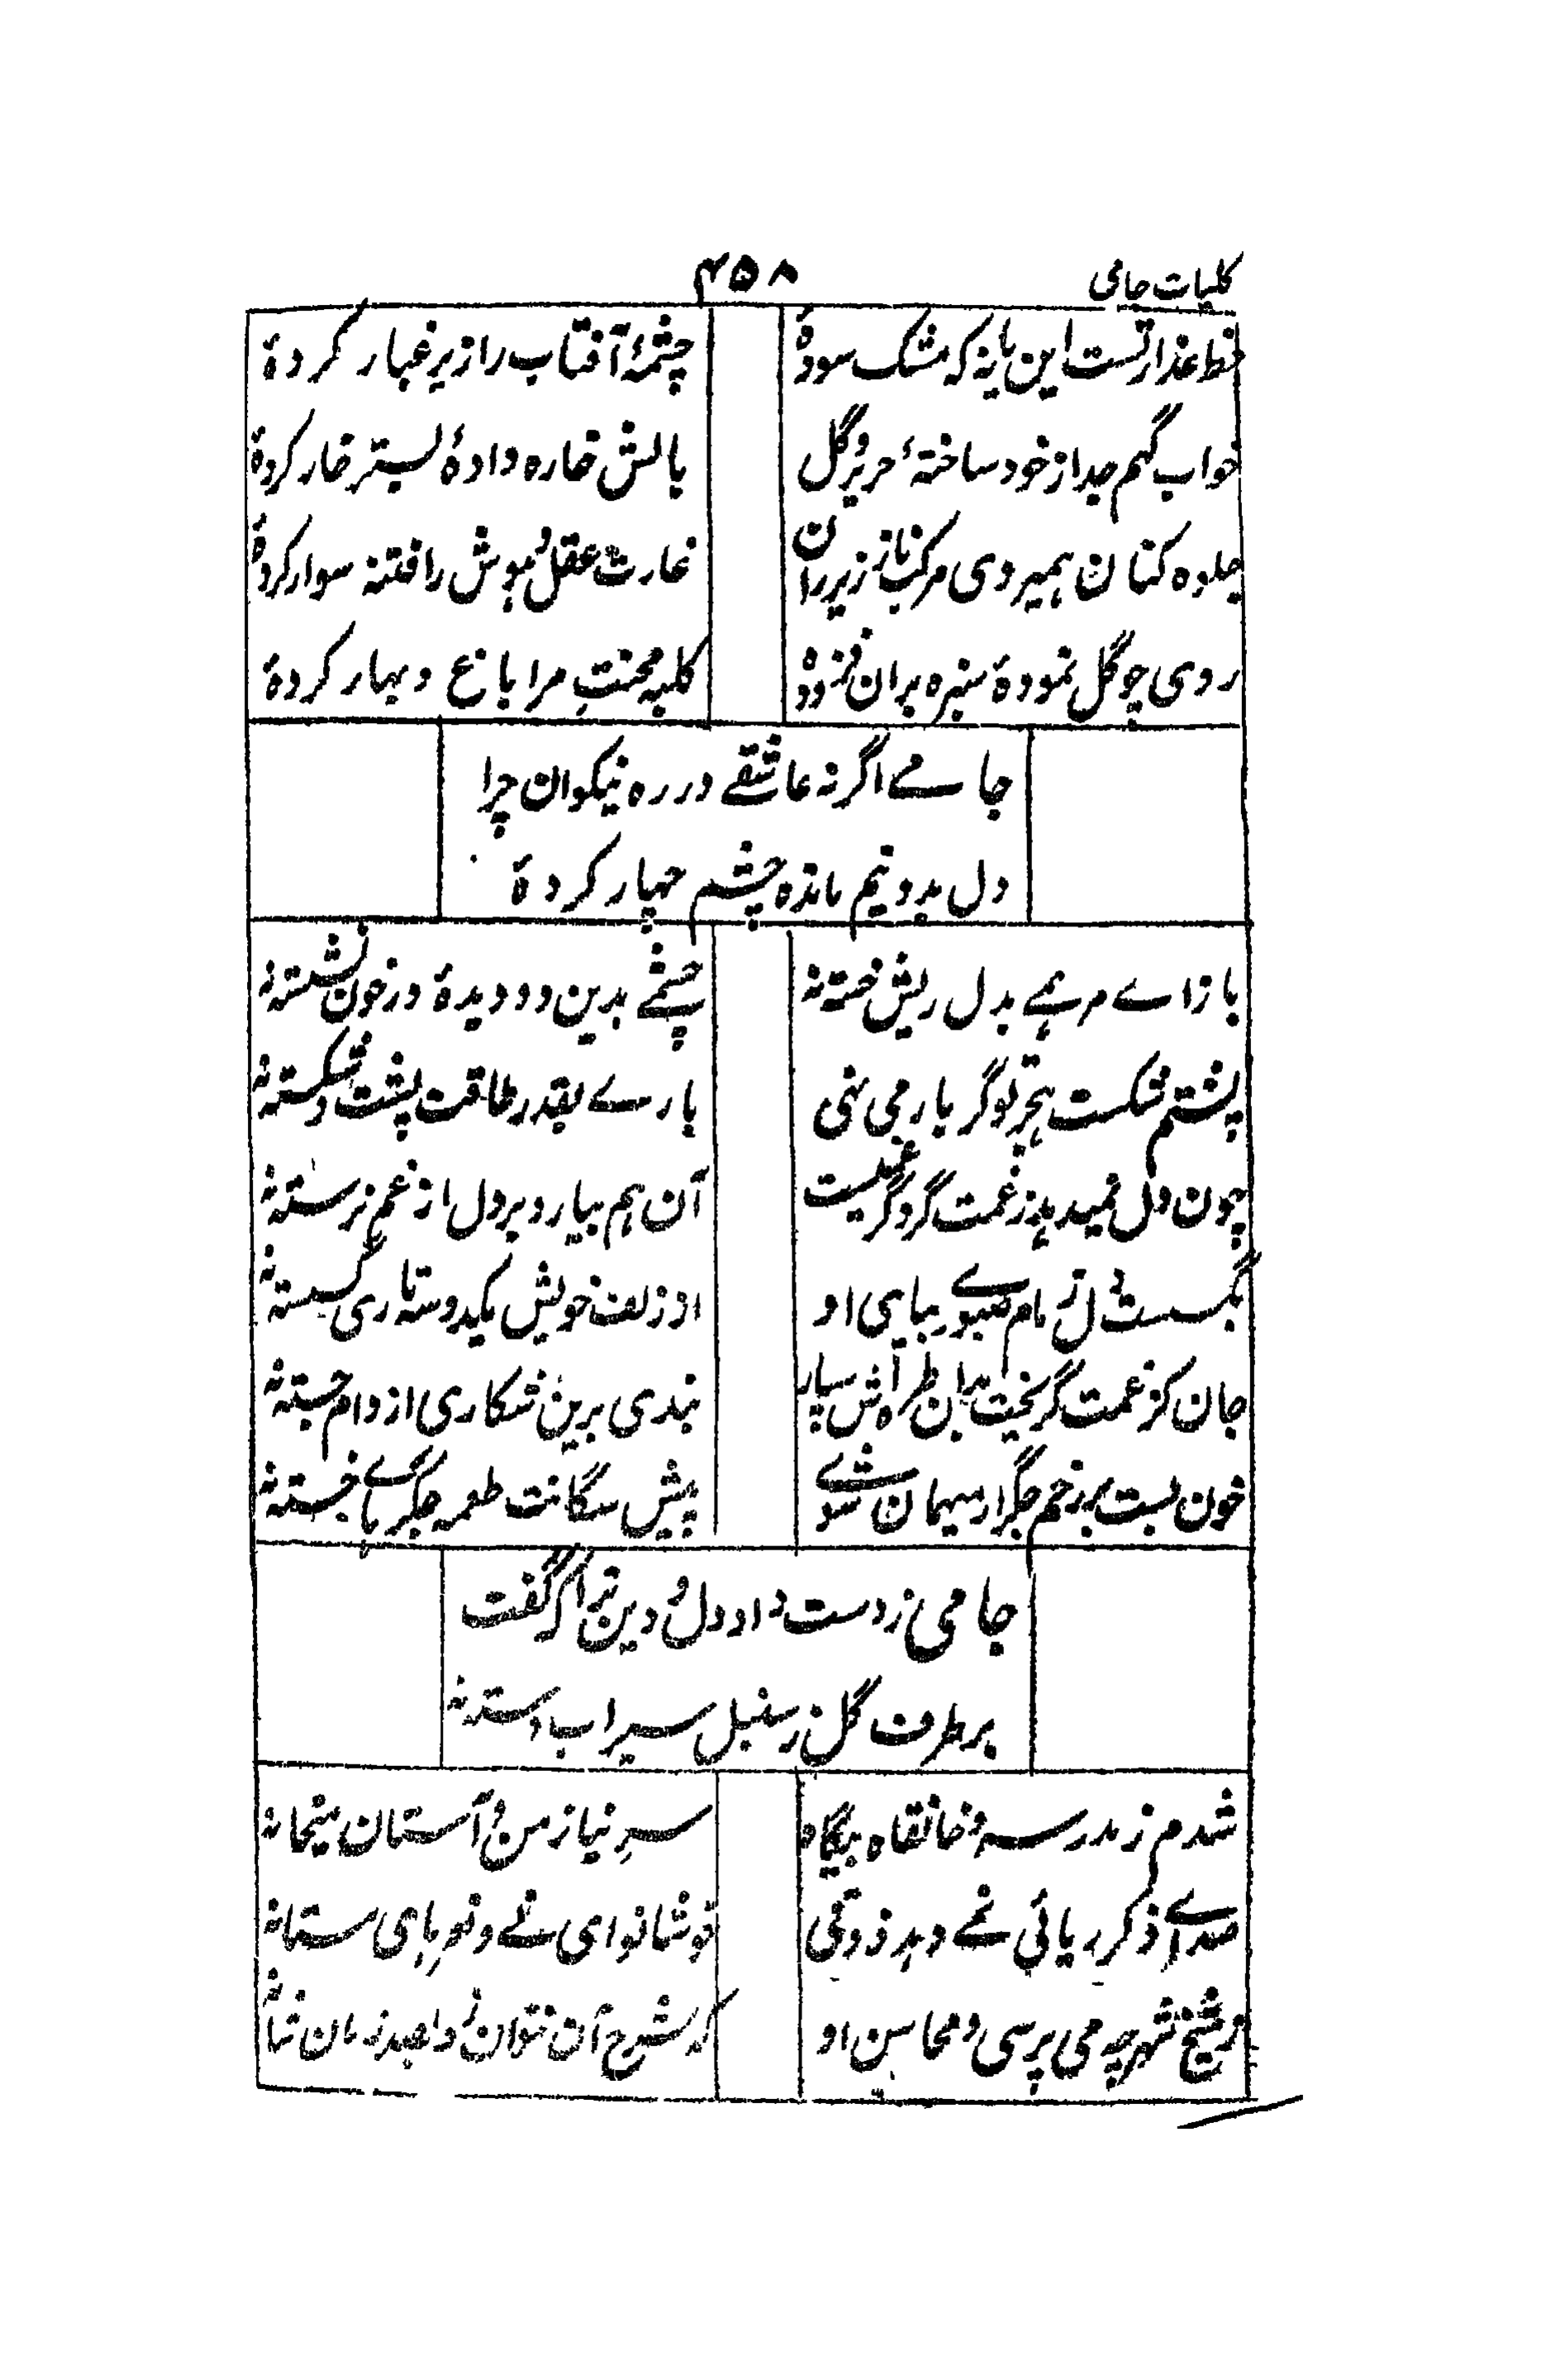 کلیات جامی
۴۵۸
خط عذار تست این یا نه که مشک سودهٔ
چشمهٔ آفتاب را زیر غبار کردهٔ
خواب گهم جدا ز خود ساختهٔ حریر و گل
بالش خاره دادهٔ بستر خار کردهٔ
جلوه کنان همیروی مرکب ناز زیر ران
غارت عقل و هوش را فتنه سوار کردهٔ
روی چو گل نمودهٔ سبزه بران فزودهٔ
کلبه محنتِ مرا باغ و بهار کردهٔ
جامے اگر نه عاشقے در ره نیکوان چرا
دل بدو نیم مانده چشم چهار کردهٔ
باز اے مرہمے بدل ریش خسته نه
چشمے بدین دو دیدهٔ در خون نشسته نه
پشتم شکست هجر تو گر بار می نهی
بارے بقدر طاقت پشت شکسته نه
چون دل نمیدهد ز غمت گر دگر غمیست
آن هم بیار و بر دل از غم نرسته نه
بگسست دل زمام صبورے بپای او
از زلف خویش یکدوسه تاری گسسته نه
جان کز غمت گریخت بدان طره‌اش سپار
بندی برین شکاری از دام جسته نه
خون بست بر زخم جگر ار میهمان شوے
پیش سگانت طعمه جگرهاے خسته نه
جامی ز دست داد دل و دین ترا که گفت
بر طرف گل ز سنبل سیراب دسته نه
شدم ز مدرسه و خانقاه بیگانه
سرِ نیاز من و آستان میخانه
صداے ذکر ریائی نمے دهد ذوقی
خوشا نوای نے و نعرهای مستانه
ز شیخ شهر چه می پرسی و محاسن او
که شرح آن نتوان داد بصد زبان شانه